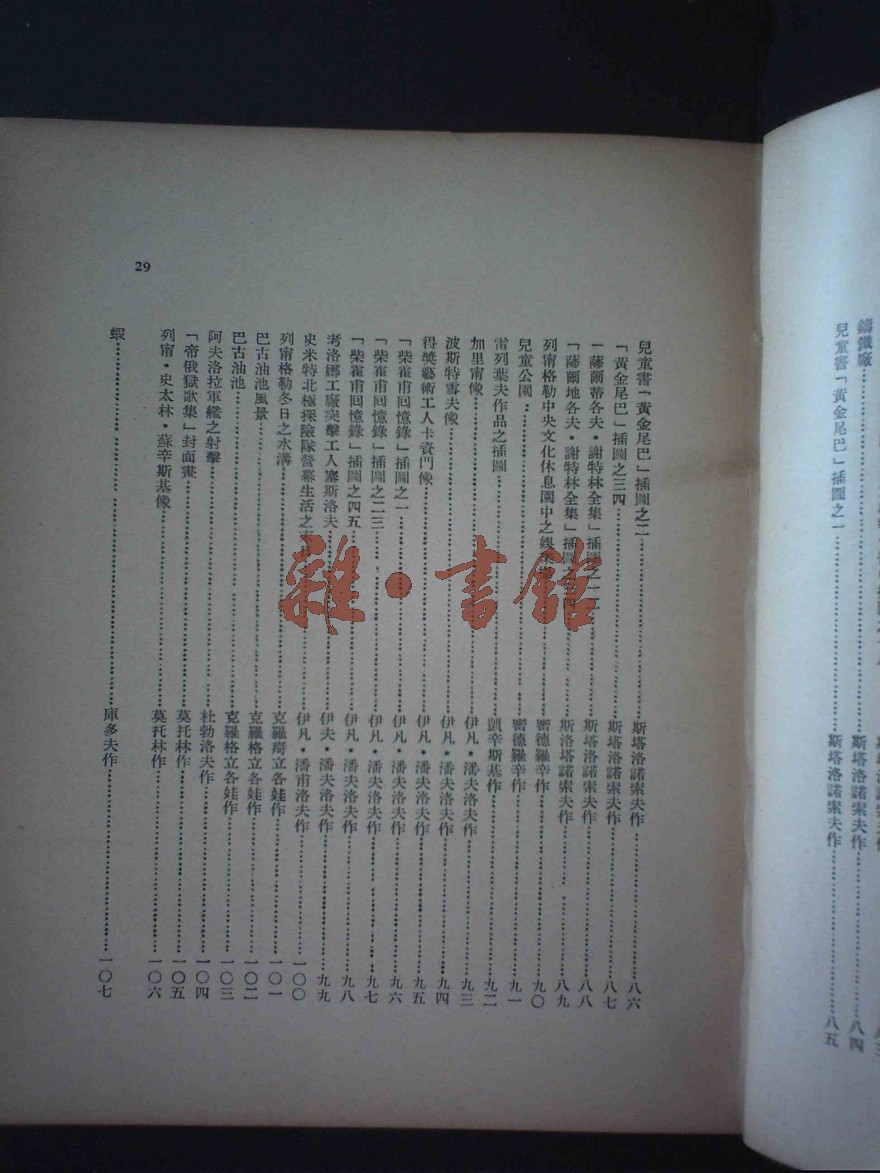 鑄鐵廠 斯塔洛諾索夫作 八四
兒童書「黃金尾巴」插圖之一 斯塔洛諾索夫作 八五
兒童書「黃金尾巴」插圖之二 斯塔洛諾索夫作 八六
「黃金尾巴」插圖之三四 斯塔洛諾索夫作 八七
「薩爾蒂各夫・謝特林全集」插圖之一二 斯塔洛諾索夫作 八八
「薩爾地各夫・謝特林全集」插圖之 四 斯洛塔諾索夫作 八九
列甯格勒中央文化休息園中之娛樂 密德羅辛作 九〇
兒童公園 密德羅辛作 九一
雷列葉夫作品之插圖 凱辛斯基作 九二
加里甯像 伊凡・潘夫洛夫作 九三
波斯特雪夫像 伊凡・潘夫洛夫作 九四
得獎藝術工人卡資門像 伊凡・潘夫洛夫作 九五
「柴霍甫回憶錄」插圖之一 伊凡・潘夫洛夫作 九六
「柴霍甫回憶錄」插圖之二三 伊凡・潘夫洛夫作 九七
「柴霍甫回憶錄」插圖之四五 伊凡・潘夫洛夫作 九八
考洛娜工廠突擊工人塞斯洛夫 伊夫・潘夫洛夫作 九九
史米特北極探險隊營幕生活之 伊凡・潘甫洛夫作 一〇〇
列甯格勒冬日之水溝 克羅辯立各娃作 一〇一
巴古油池風景 克羅格立各娃作 一〇二
巴古油池 克羅格立各娃作 一〇三
阿夫洛拉軍艦之射擊 杜勃洛夫作 一〇四
「帝俄獄歌集」封面畫 莫托林作 一〇五
列甯・史太林・蘇辛斯基像 莫托林作 一〇六
蝦 庫多夫作 一〇七
29
雜・書館